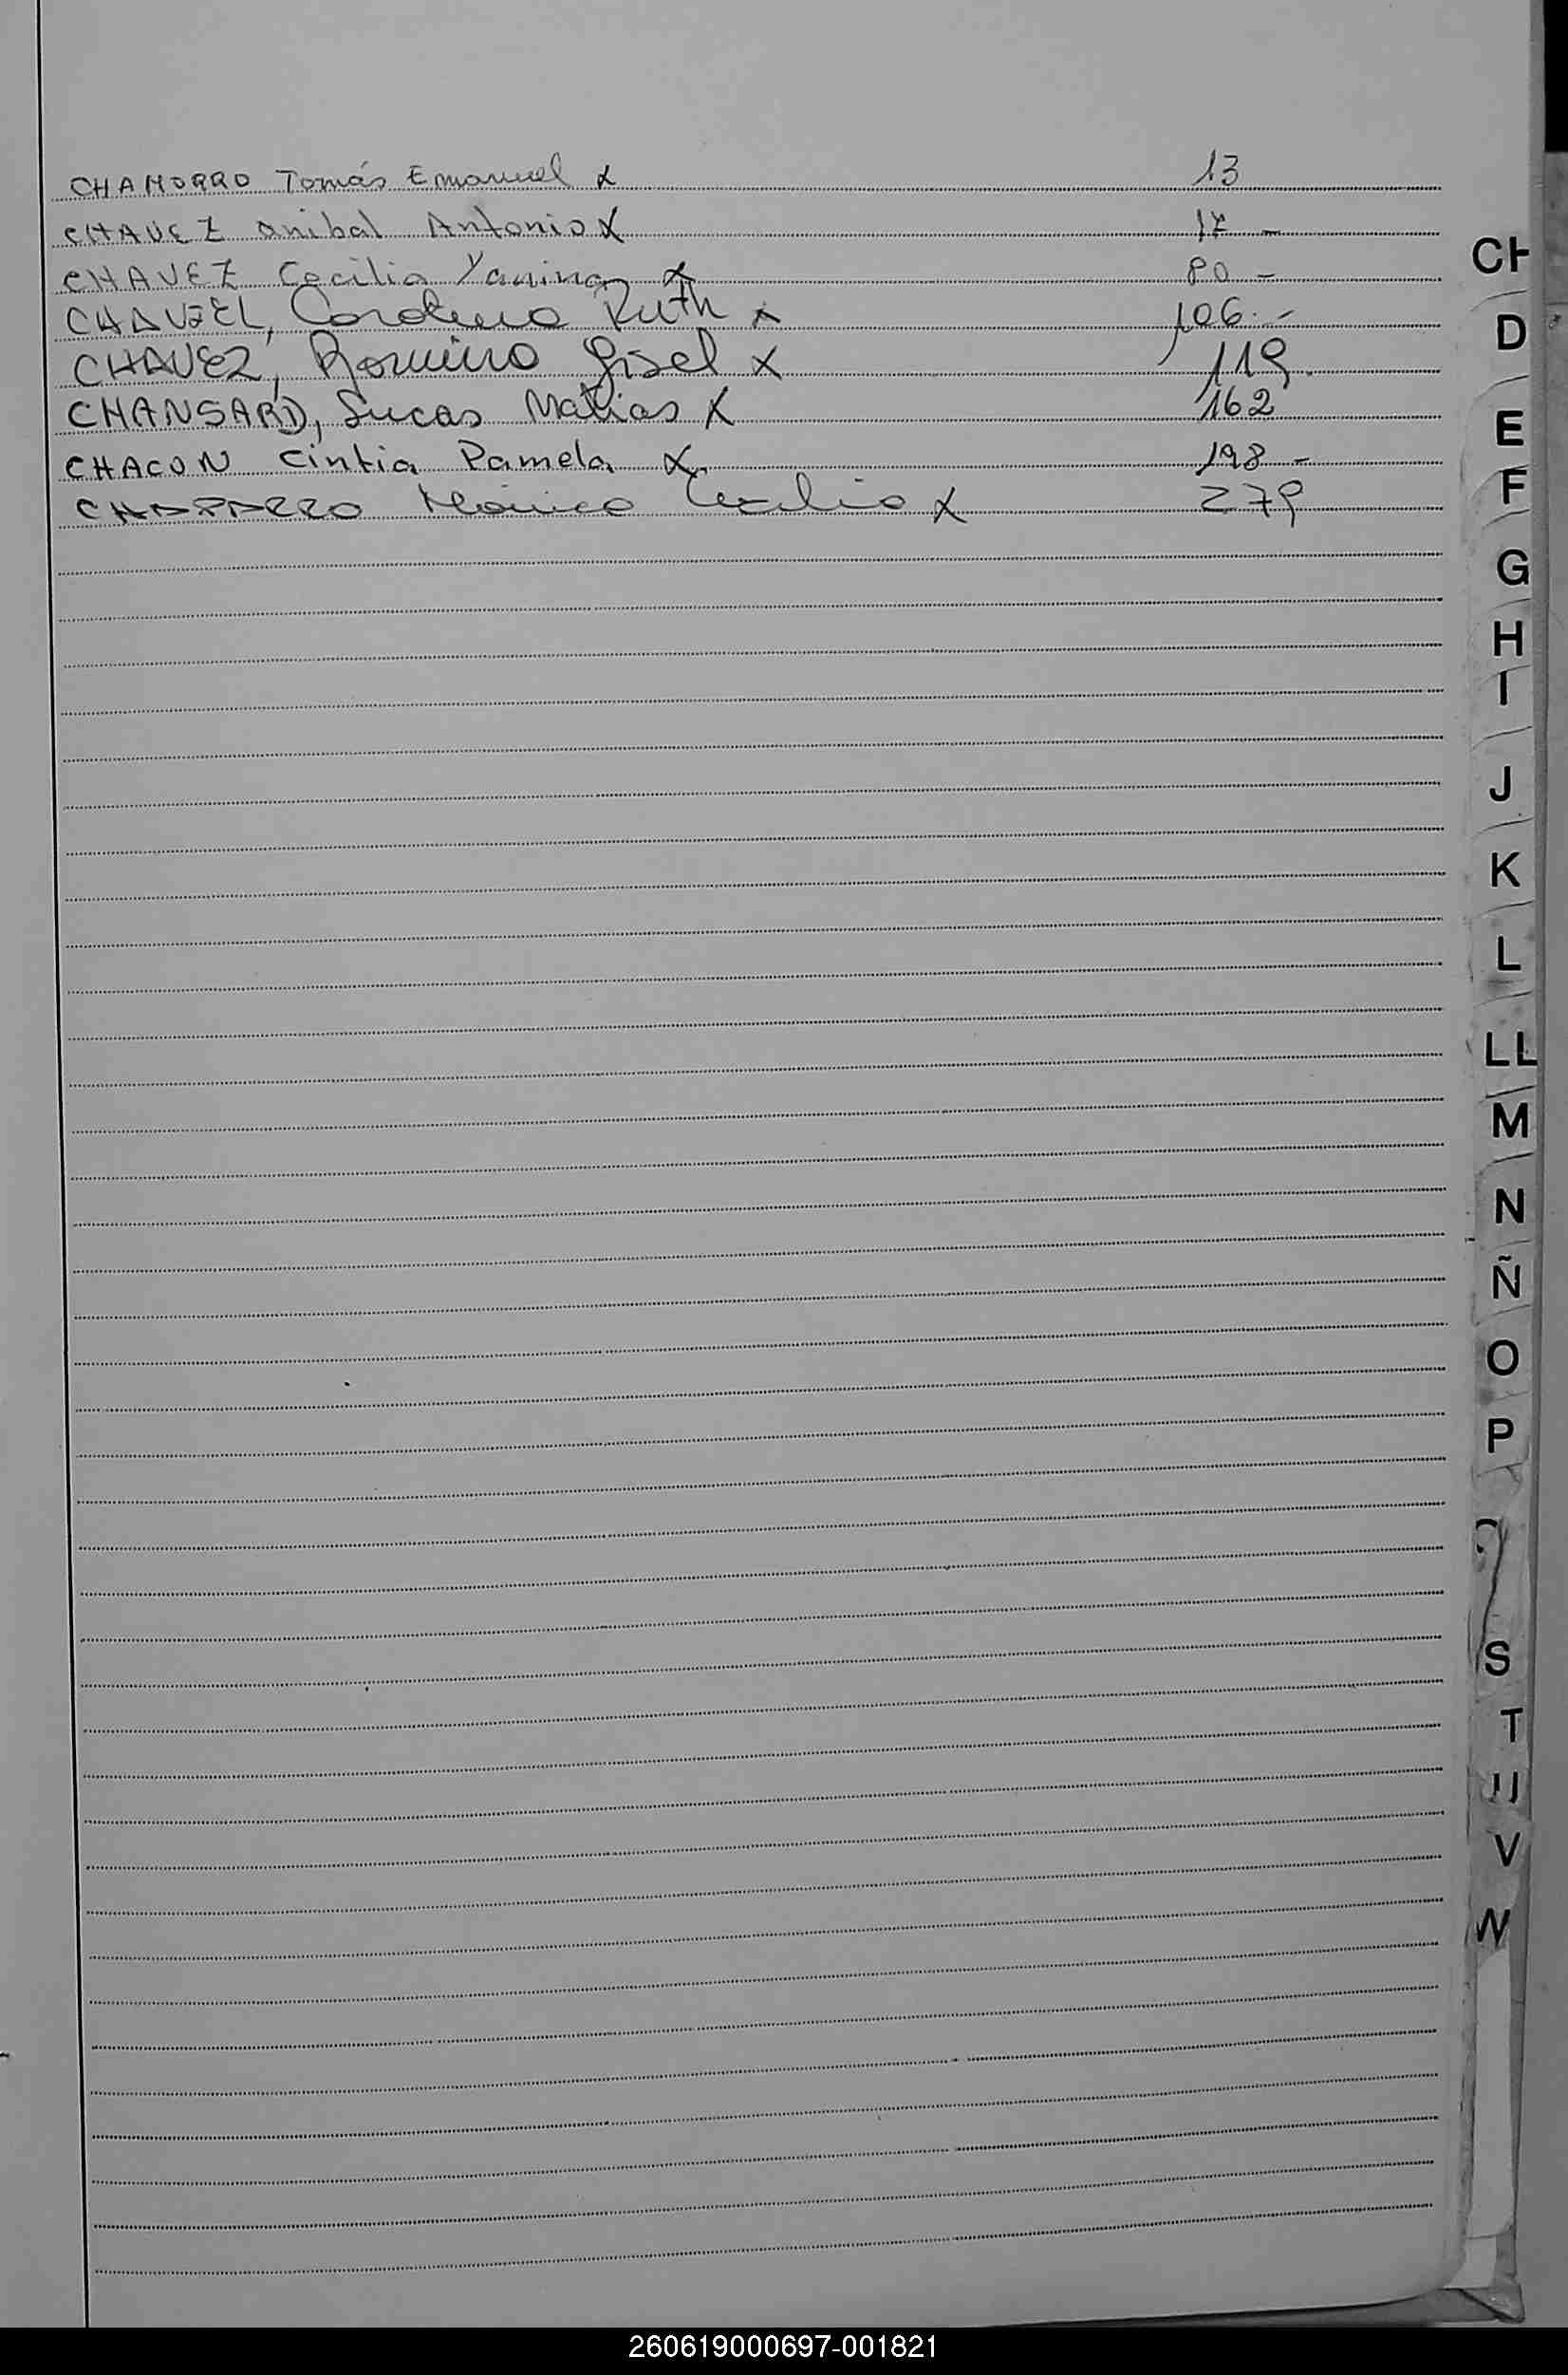 CHAMORRO Tomás Emanuel x 13
CHAVEZ Anibal Antonio x 17 -
CHAVEZ Cecilia Yanina x 80 -
CHAVEZ, Ruth x 106.-
CHAVEZ, Romina Gisel x 119.
CHANSARD, Lucas Matias x 162
CHACON Cintia Pamela x 198 -
CHAPARRO Mónica Cecilia x 279
CH
D
E
F
G
H
I
J
K
L
LL
M
N
Ñ
O
P
S
T
U
V
W
260619000697-001821